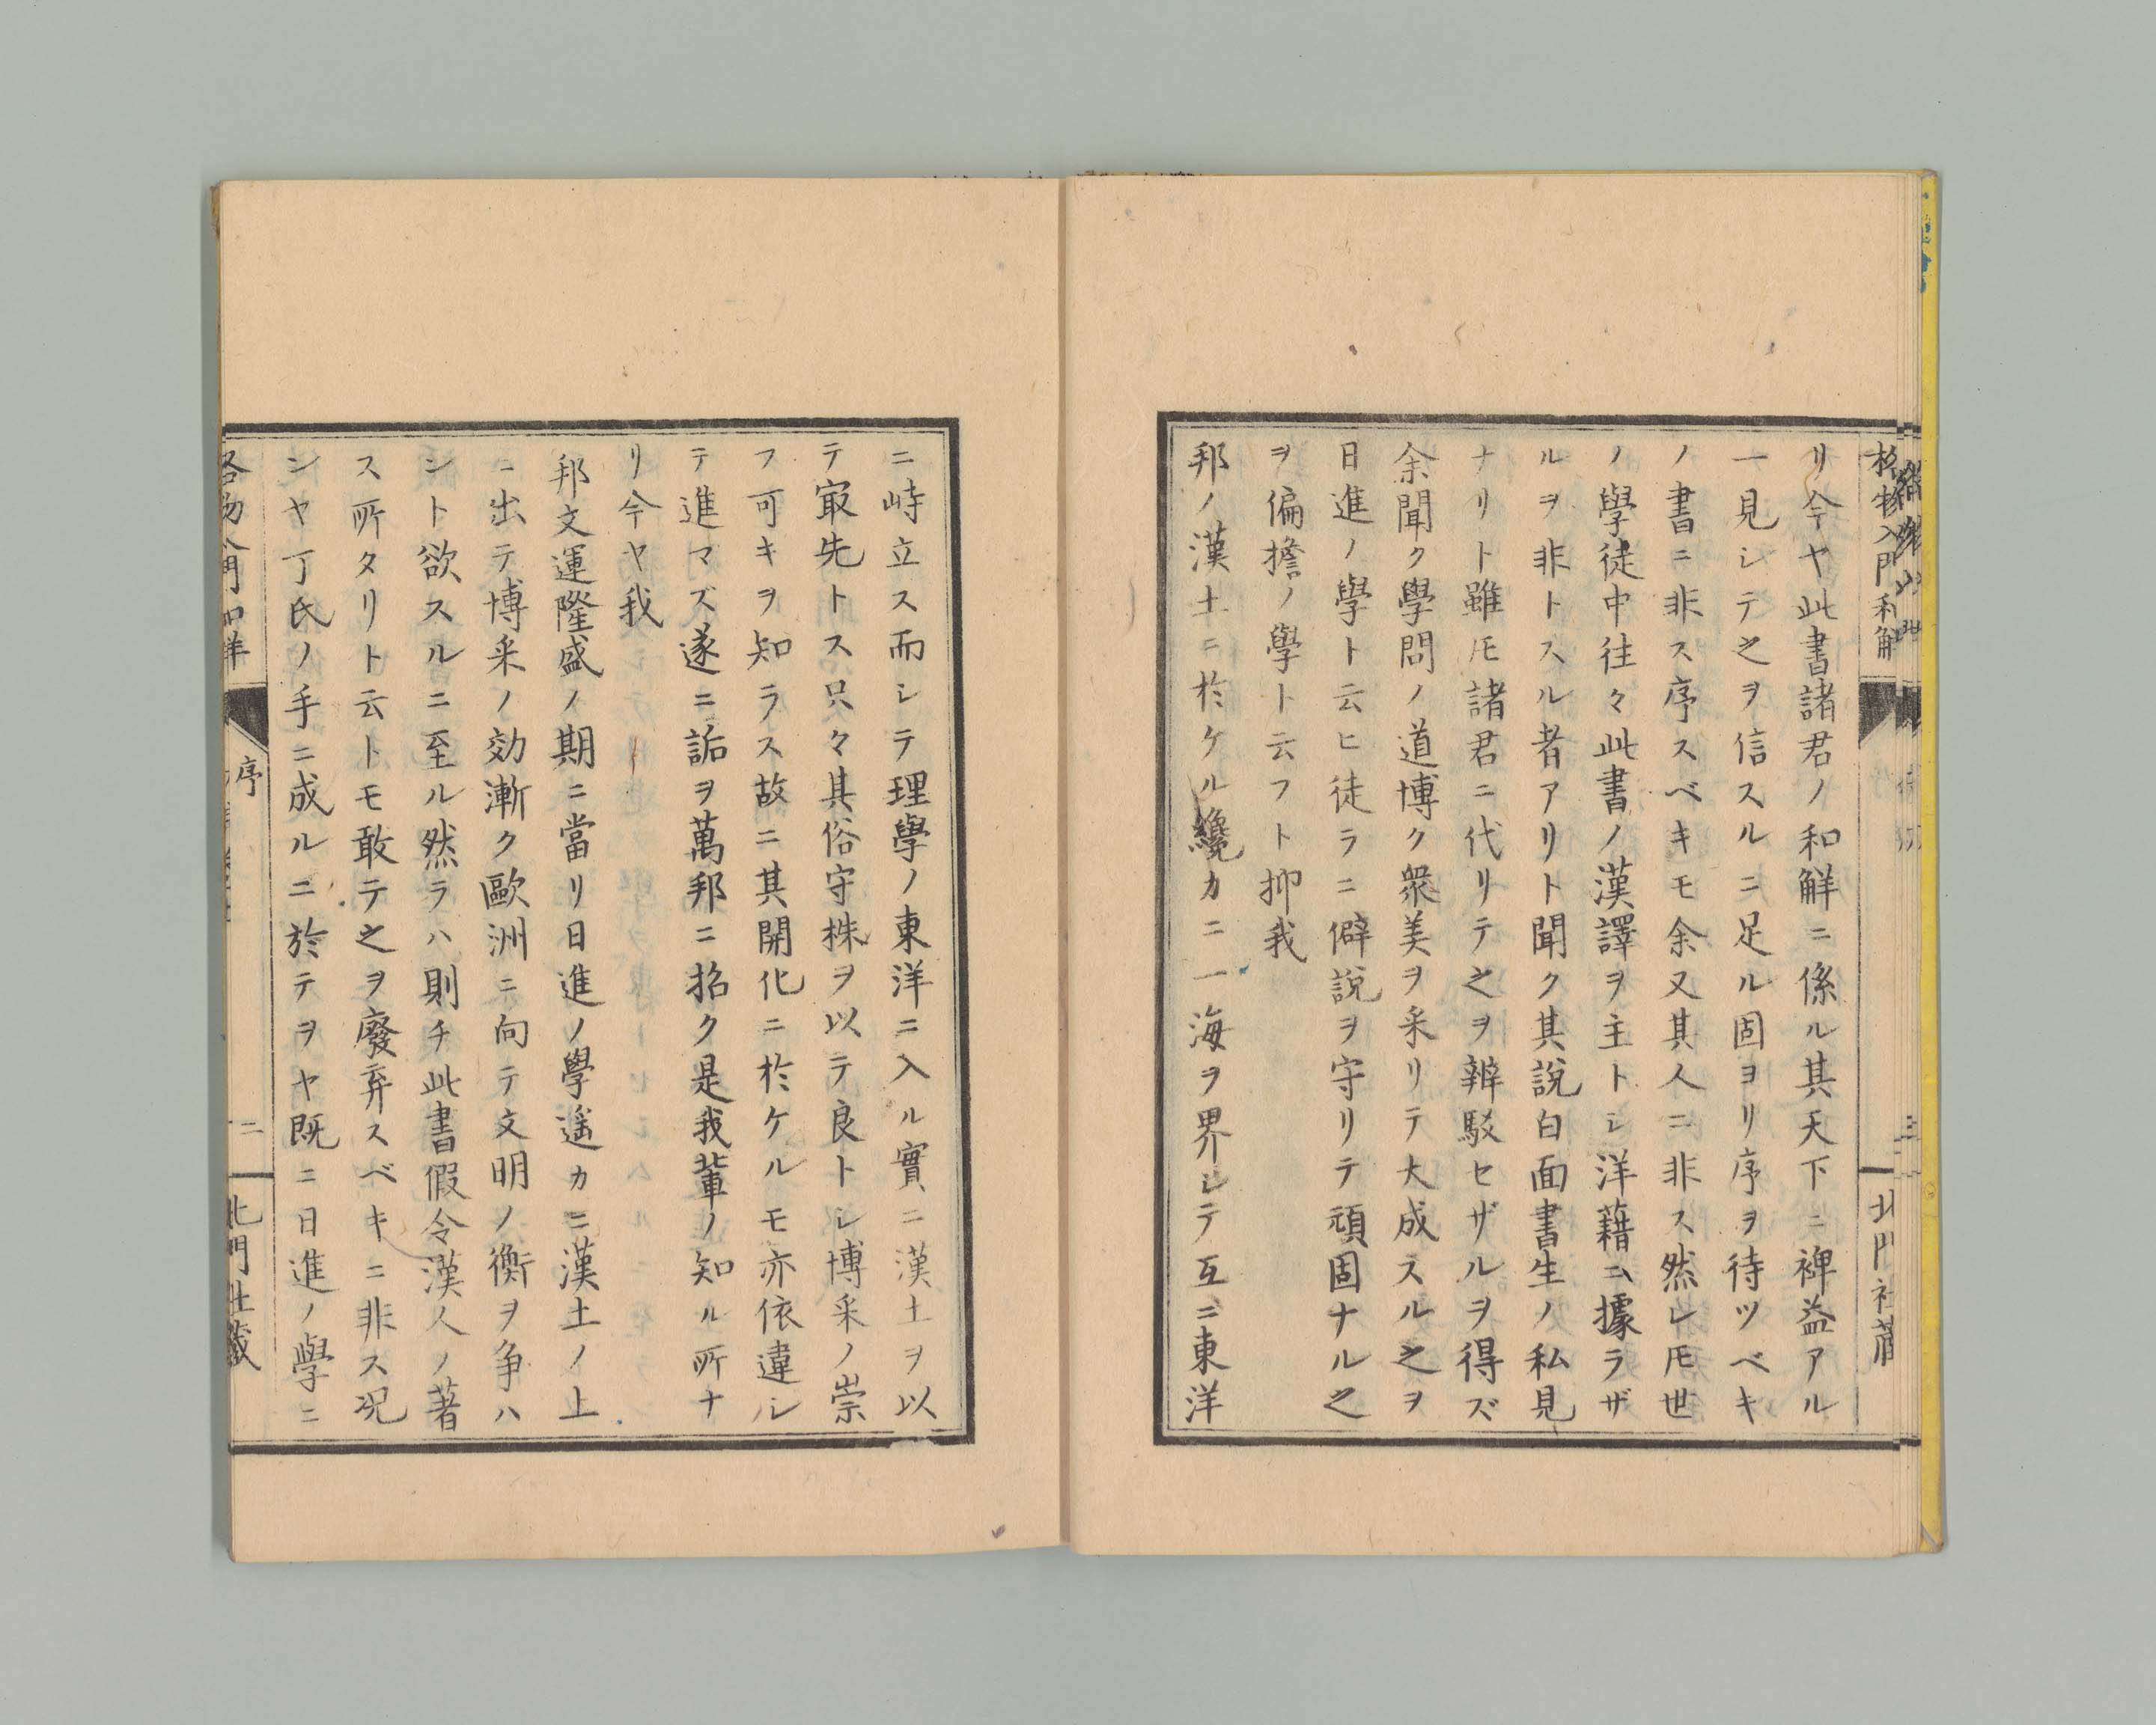 リ今ヤ此書諸君ノ和解ニ係ル其天下ニ裨益アル
一見シテ之ヲ信スルニ足ル固ヨリ序ヲ待ツベキ
ノ書ニ非ス序スベキモ余又其人ニ非ス然レ𪜈世
ノ學徒中往々此書ノ漢譯ヲ主トシ洋藉ニ據ラザ
ルヲ非トスル者アリト聞ク其說白面書生ノ私見
ナリト雖𪜈諸君ニ代リテ之ヲ辨駁セザルヲ得ズ
余聞ク學問ノ道博ク衆美ヲ采リテ大成スル之ヲ
日進ノ學ト云ヒ徒ラニ僻說ヲ守リテ頑固ナル之
ヲ偏擔ノ學ト云フト抑我
邦ノ漢土ニ於ケル纔カニ一海ヲ界シテ互ニ東洋
ニ峙立ス而シテ理學ノ東洋ニ入ル實ニ漢土ヲ以
テ㝡先トス只々其俗守株ヲ以テ良トシ博采ノ崇
フ可キヲ知ラス故ニ其開化ニ於ケルモ亦依違シ
テ進マズ遂ニ詬ヲ萬邦ニ招ク是我輩ノ知ル所ナ
リ今ヤ我
邦文運隆盛ノ期ニ當リ日進ノ學遥カニ漢土ノ上
ニ出テ博采ノ効漸ク歐洲ニ向テ文明ノ衡ヲ争ハ
ント欲スルニ至ル然ラハ則チ此書假令漢人ノ著
ス所タリト云トモ敢テ之ヲ廢棄スベキニ非ス况
ンヤ丁氏ノ手ニ成ルニ於テヲヤ既ニ日進ノ學ニ
格物入門和解
序
二
北門社藏